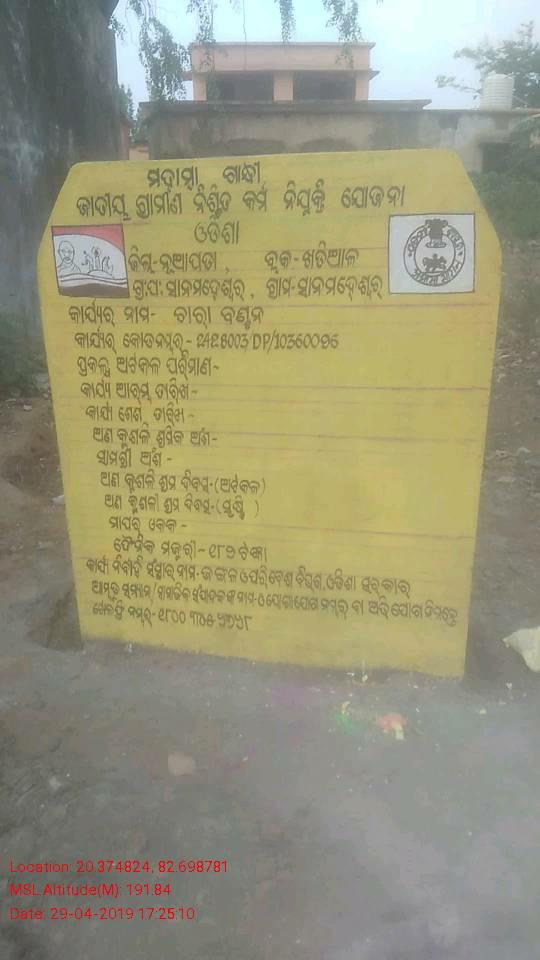 ମହାତ୍ମା ଗାନ୍ଧୀ
ଜାତୀୟ ଗ୍ରାମୀଣ ନିଶ୍ଚିତ କର୍ମ ନିଯୁକ୍ତି ଯୋଜନା
ଓଡିଶା
ଜିଲ୍ଲା-ନୂଆପଡା, ବ୍ଲକ-ଖଡିଆଳ
ଗ୍ରା:ପ: ସାନମହେଶ୍ୱର, ଗ୍ରାମ-ସାନମହେଶ୍ୱର
କାର୍ଯ୍ୟର ନାମ- ଚାରା ବଣ୍ଟନ
କାର୍ଯ୍ୟର କୋଡନମ୍ବର-2425003/DP/10360096
ପ୍ରକଳ୍ପ ଅଟକଳ ପରିମାଣ-
କାର୍ଯ୍ୟ ଆରମ୍ଭ ତାରିଖ-
କାର୍ଯ୍ୟ ଶେଷ ତାରିଖ-
ଅଣ କୁଶଳି ଶ୍ରମିକ ଅଂଶ-
ସାମଗ୍ରୀ ଅଂଶ-
ଅଣ କୁଶଳି ଶ୍ରମ ଦିବସ-(ଅଟକଳ)
ଅଣ କୁଶଳୀ ଶ୍ରମ ଦିବସ-(ସୃଷ୍ଟି )
ମାପର ଏକକ-
ଦୈନିକ ମଜୁରୀ-୧୮୨ ଟଙ୍କା
କାର୍ଯ୍ୟ ନିର୍ବାହୀ ସଂସ୍ଥାର ନାମ-ଜଙ୍ଗଲ ଓ ପରିବେଶ ବିଭାଗ, ଓଡିଶା ସରକାର
ନାମ-ଓ ଯୋଗାଯୋଗ ନମ୍ବର ବା ଅଭିଯୋଗ ନିମନ୍ତେ
ନମ୍ବର-୧୮୦୦
Location: 20.374824, 82.698781
MSL Altitude(M): 191.84
Date: 29-04-2019 17:25:10